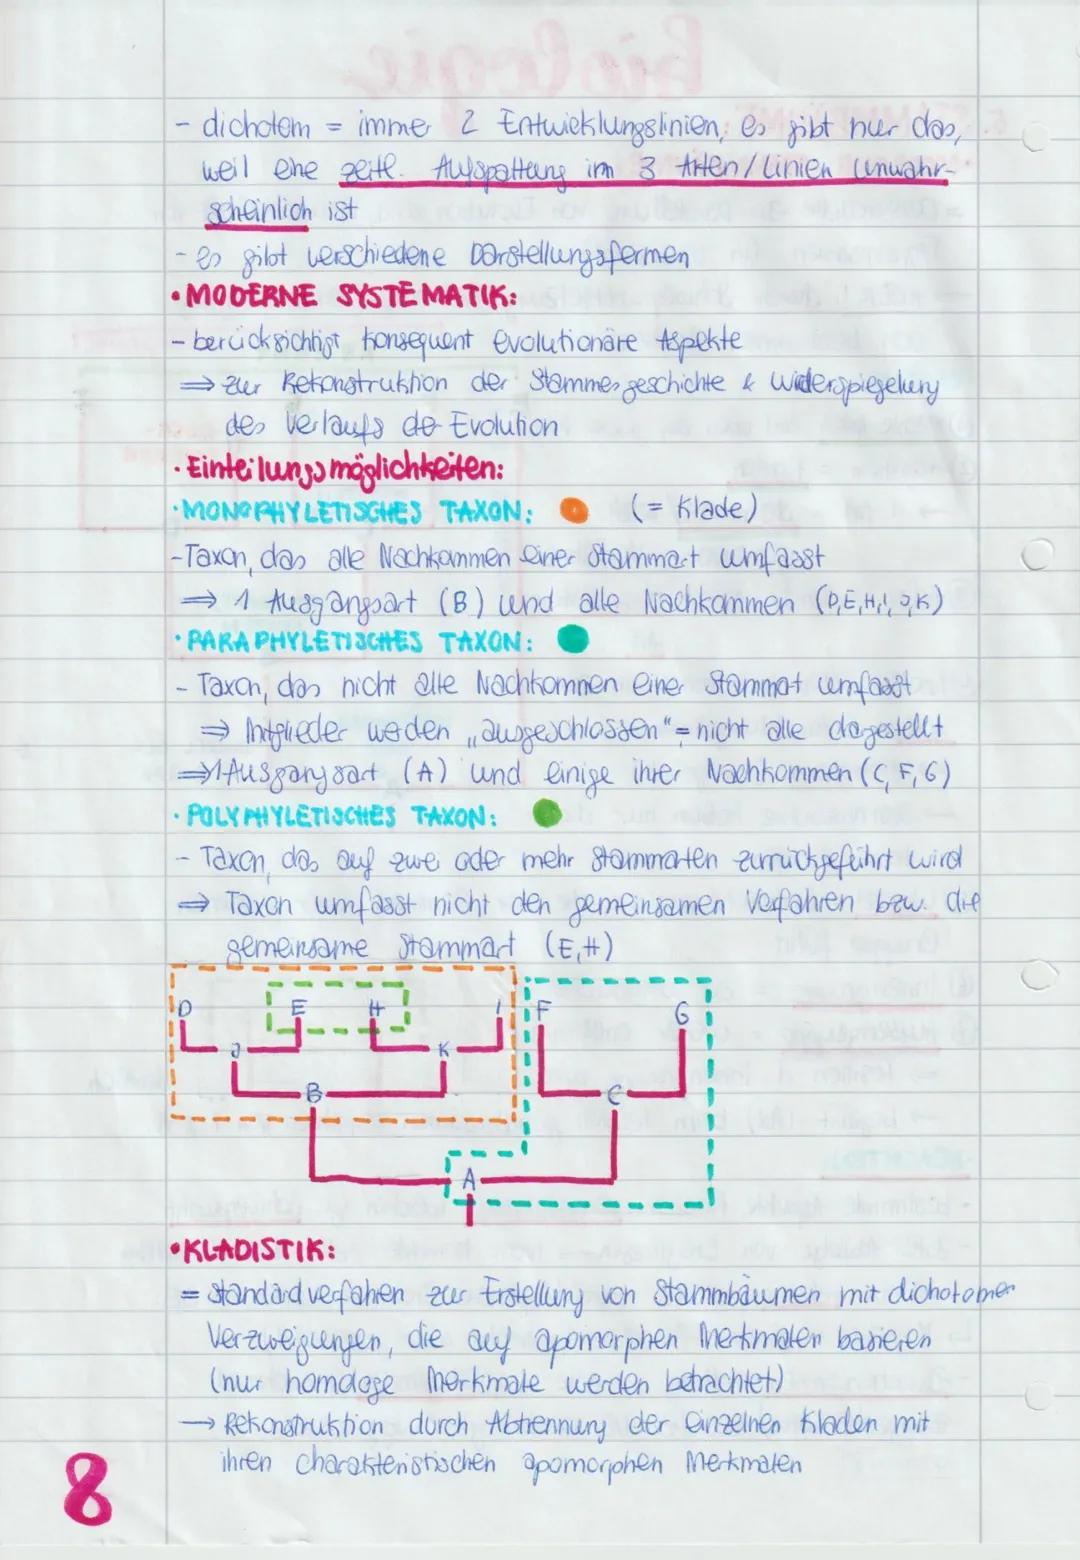 - dichotom = immer 2 Entwicklungslinien, es gibt nur das,
weil eine zeitl. Aufspaltung in 3 Arten/Linien unwahr-
scheinlich ist
- es gibt verschiedene Darstellungsformen
• MODERNE SYSTEMATIK:
- berücksichtigt konsequent evolutionäre Aspekte
⇒ zur Rekonstruktion der Stammesgeschichte & Widerspiegelung
des Verlaufs der Evolution
• Einteilungsmöglichkeiten:
• MONOPHYLETISCHES TAXON: (= Klade)
- Taxon, das alle Nachkommen einer Stammart umfasst
⇒ 1 Ausgangsart (B) und alle Nachkommen (D,E,H,I,J,K)
• PARAPHYLETISCHES TAXON:
- Taxon, das nicht alle Nachkommen einer Stammart umfasst
⇒ Mitglieder werden „ausgeschlossen" = nicht alle dargestellt
⇒ 1 Ausgangsart (A) und einige ihrer Nachkommen (C, F, G)
• POLYPHYLETISCHES TAXON:
- Taxon, das auf zwei oder mehr Stammarten zurrückgeführt wird
⇒ Taxon umfasst nicht den gemeinsamen Vorfahren bzw. die
gemeinsame Stammart (E,H)
D E H I F G
J K
B C
A
• KLADISTIK:
= Standardverfahren zur Erstellung von Stammbäumen mit dichotomer
Verzweigungen, die auf apomorphen Merkmalen basieren
(nur homologe Merkmale werden betrachtet)
→ Rekonstruktion durch Abtrennung der einzelnen Kladen mit
ihren charakteristischen apomorphen Merkmalen
8